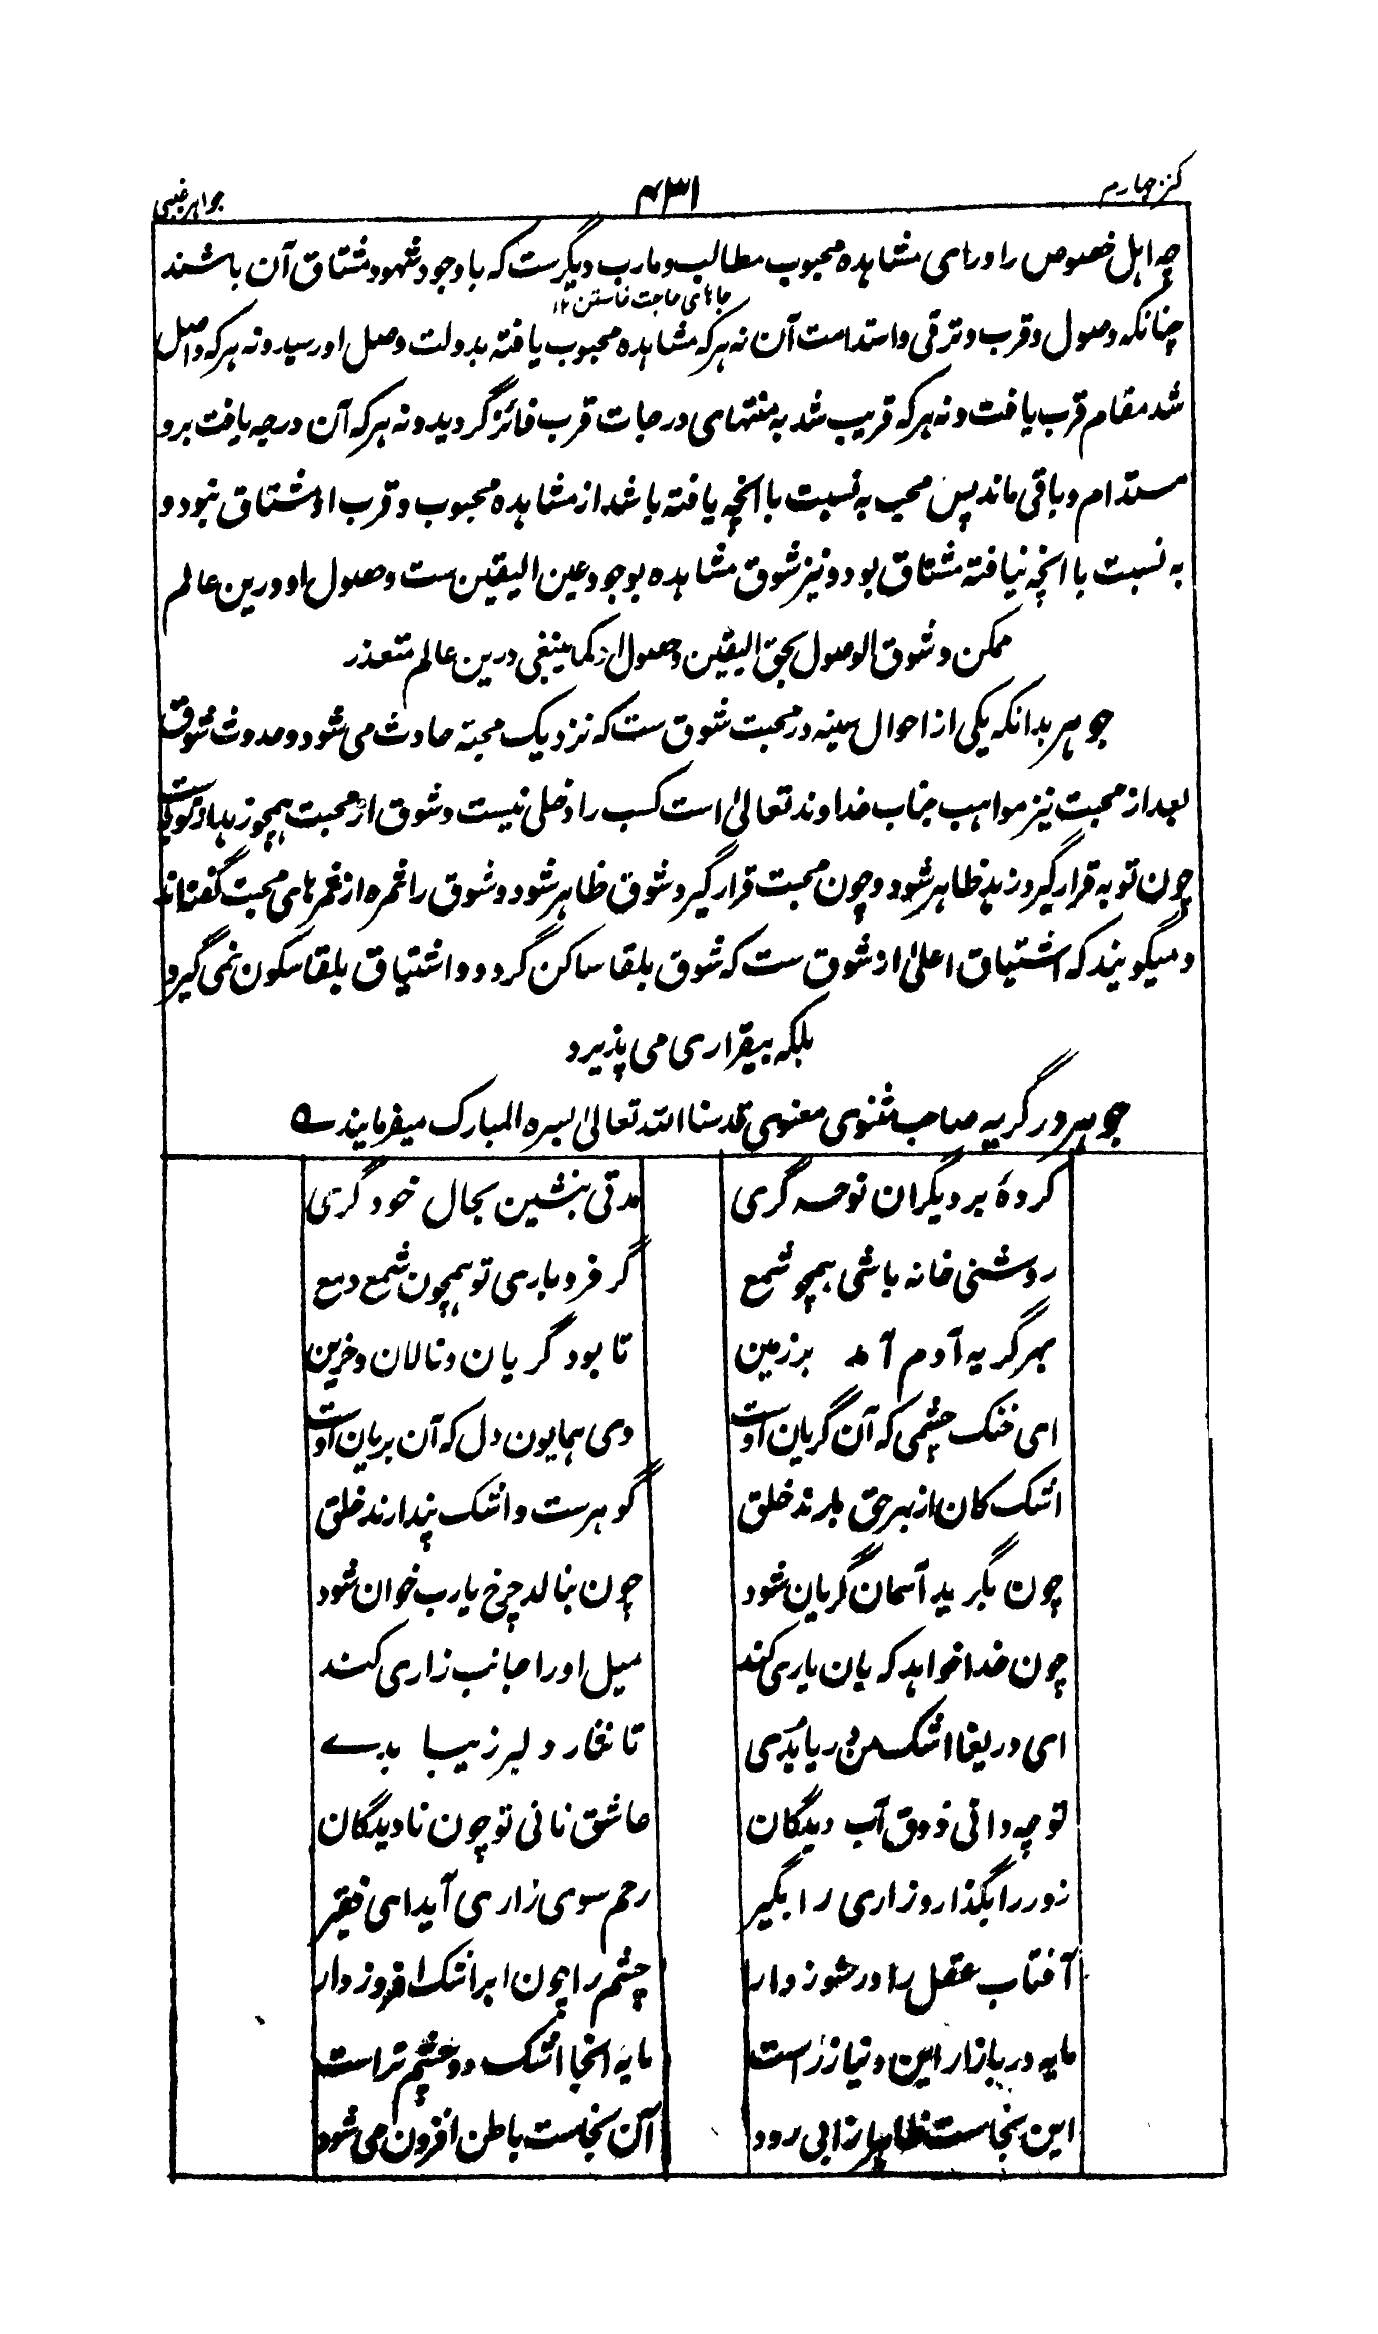 کنز چهارم
۴۳۱
جواهر غیبی
چه اهل خصوص را ورای مشاهده محبوب مطالب و مارب دیگرست که با وجود شهود مشتاق آن باشند
جاهای حاجت خاستن ۱۲
چنانکه وصول و قرب و ترقی و استدامت آن نه هر که مشاهده محبوب یافته بدولت وصل او رسید و نه هر که واصل
شد مقام قرب یافت و نه هر که قریب شد به منتهای درجات قرب فائز گردید و نه هر که آن درجه یافت برو
مستدام و باقی ماند پس محب به نسبت با انچه یافته باشد از مشاهده محبوب و قرب او مشتاق نبود و
به نسبت با انچه نیافته مشتاق بود و نیز شوق مشاهده بوجود عین الیقین ست وصول او درین عالم
ممکن و شوق الوصول بحق الیقین وصول او کما ینبغی درین عالم متعذر
جوهر بدانکه یکی از احوال سینه در محبت شوق ست که نزدیک محبته حادث می شود و حدوث شوق
بعد از محبت نیز مواهب جناب خداوند تعالیٰ است کسب را دخلی نیست و شوق از محبت همچو زهد از توبه است
چون توبه قرار گیرد زهد ظاهر شود و چون محبت قرار گیرد شوق ظاهر شود و شوق را ثمره از ثمرهای محبت گفته اند
و میگویند که اشتیاق اعلیٰ از شوق ست که شوق بلقا ساکن گردد و اشتیاق بلقا سکون نمی گیرد
بلکه بیقراری می پذیرد
جوهر در گریه صاحب مثنوی معنوی قدسنا الله تعالیٰ بسره المبارک میفرمایند ے
کردهٔ بر دیگران نوحه گری
مدتی بنشین بحال خود گری
روشنی خانه باشی همچو شمع
گر فرو باری تو همچون شمع دمع
بهر گریه آدم آمد بر زمین
تا بود گریان و نالان و حزین
ای خنک چشمی که آن گریان اوست
وی همایون دل که آن بریان اوست
اشک کان از بهر حق بارند خلق
گوهرست و اشک پندارند خلق
چون بگرید آسمان گریان شود
چون بنالد چرخ یارب خوان شود
چون خدا خواهد که یان یاری کند
میل او را جانب زاری کند
ای دریغا اشک من دریا بدی
تا نثار دلبر زیبا بدے
تو چه دانی ذوق آب دیدگان
عاشق نانی تو چون نادیدگان
زور را بگذار و زاری را بگیر
رحم سوی زاری آید ای فقیر
آفتاب عقل را در سوز دار
چشم را چون ابر اشک افروز دار
مایه در بازار این دنیا زر است
مایه انجا اشک و دو چشم تر است
این نجاست ظاهر از آبی رود
آن نجاست باطن افزون می شود